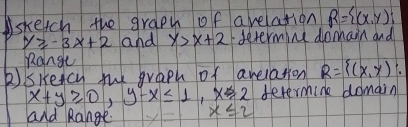 1) sketch the graph of a relation R={(x,y);
y≥-3x+2 and y>x+2. determine domain and
Range
2) Sketch the graph of a relation R={(x,y):
x+y≥0, y-x≤1, x≤2 determine domain
and Range. x≤2